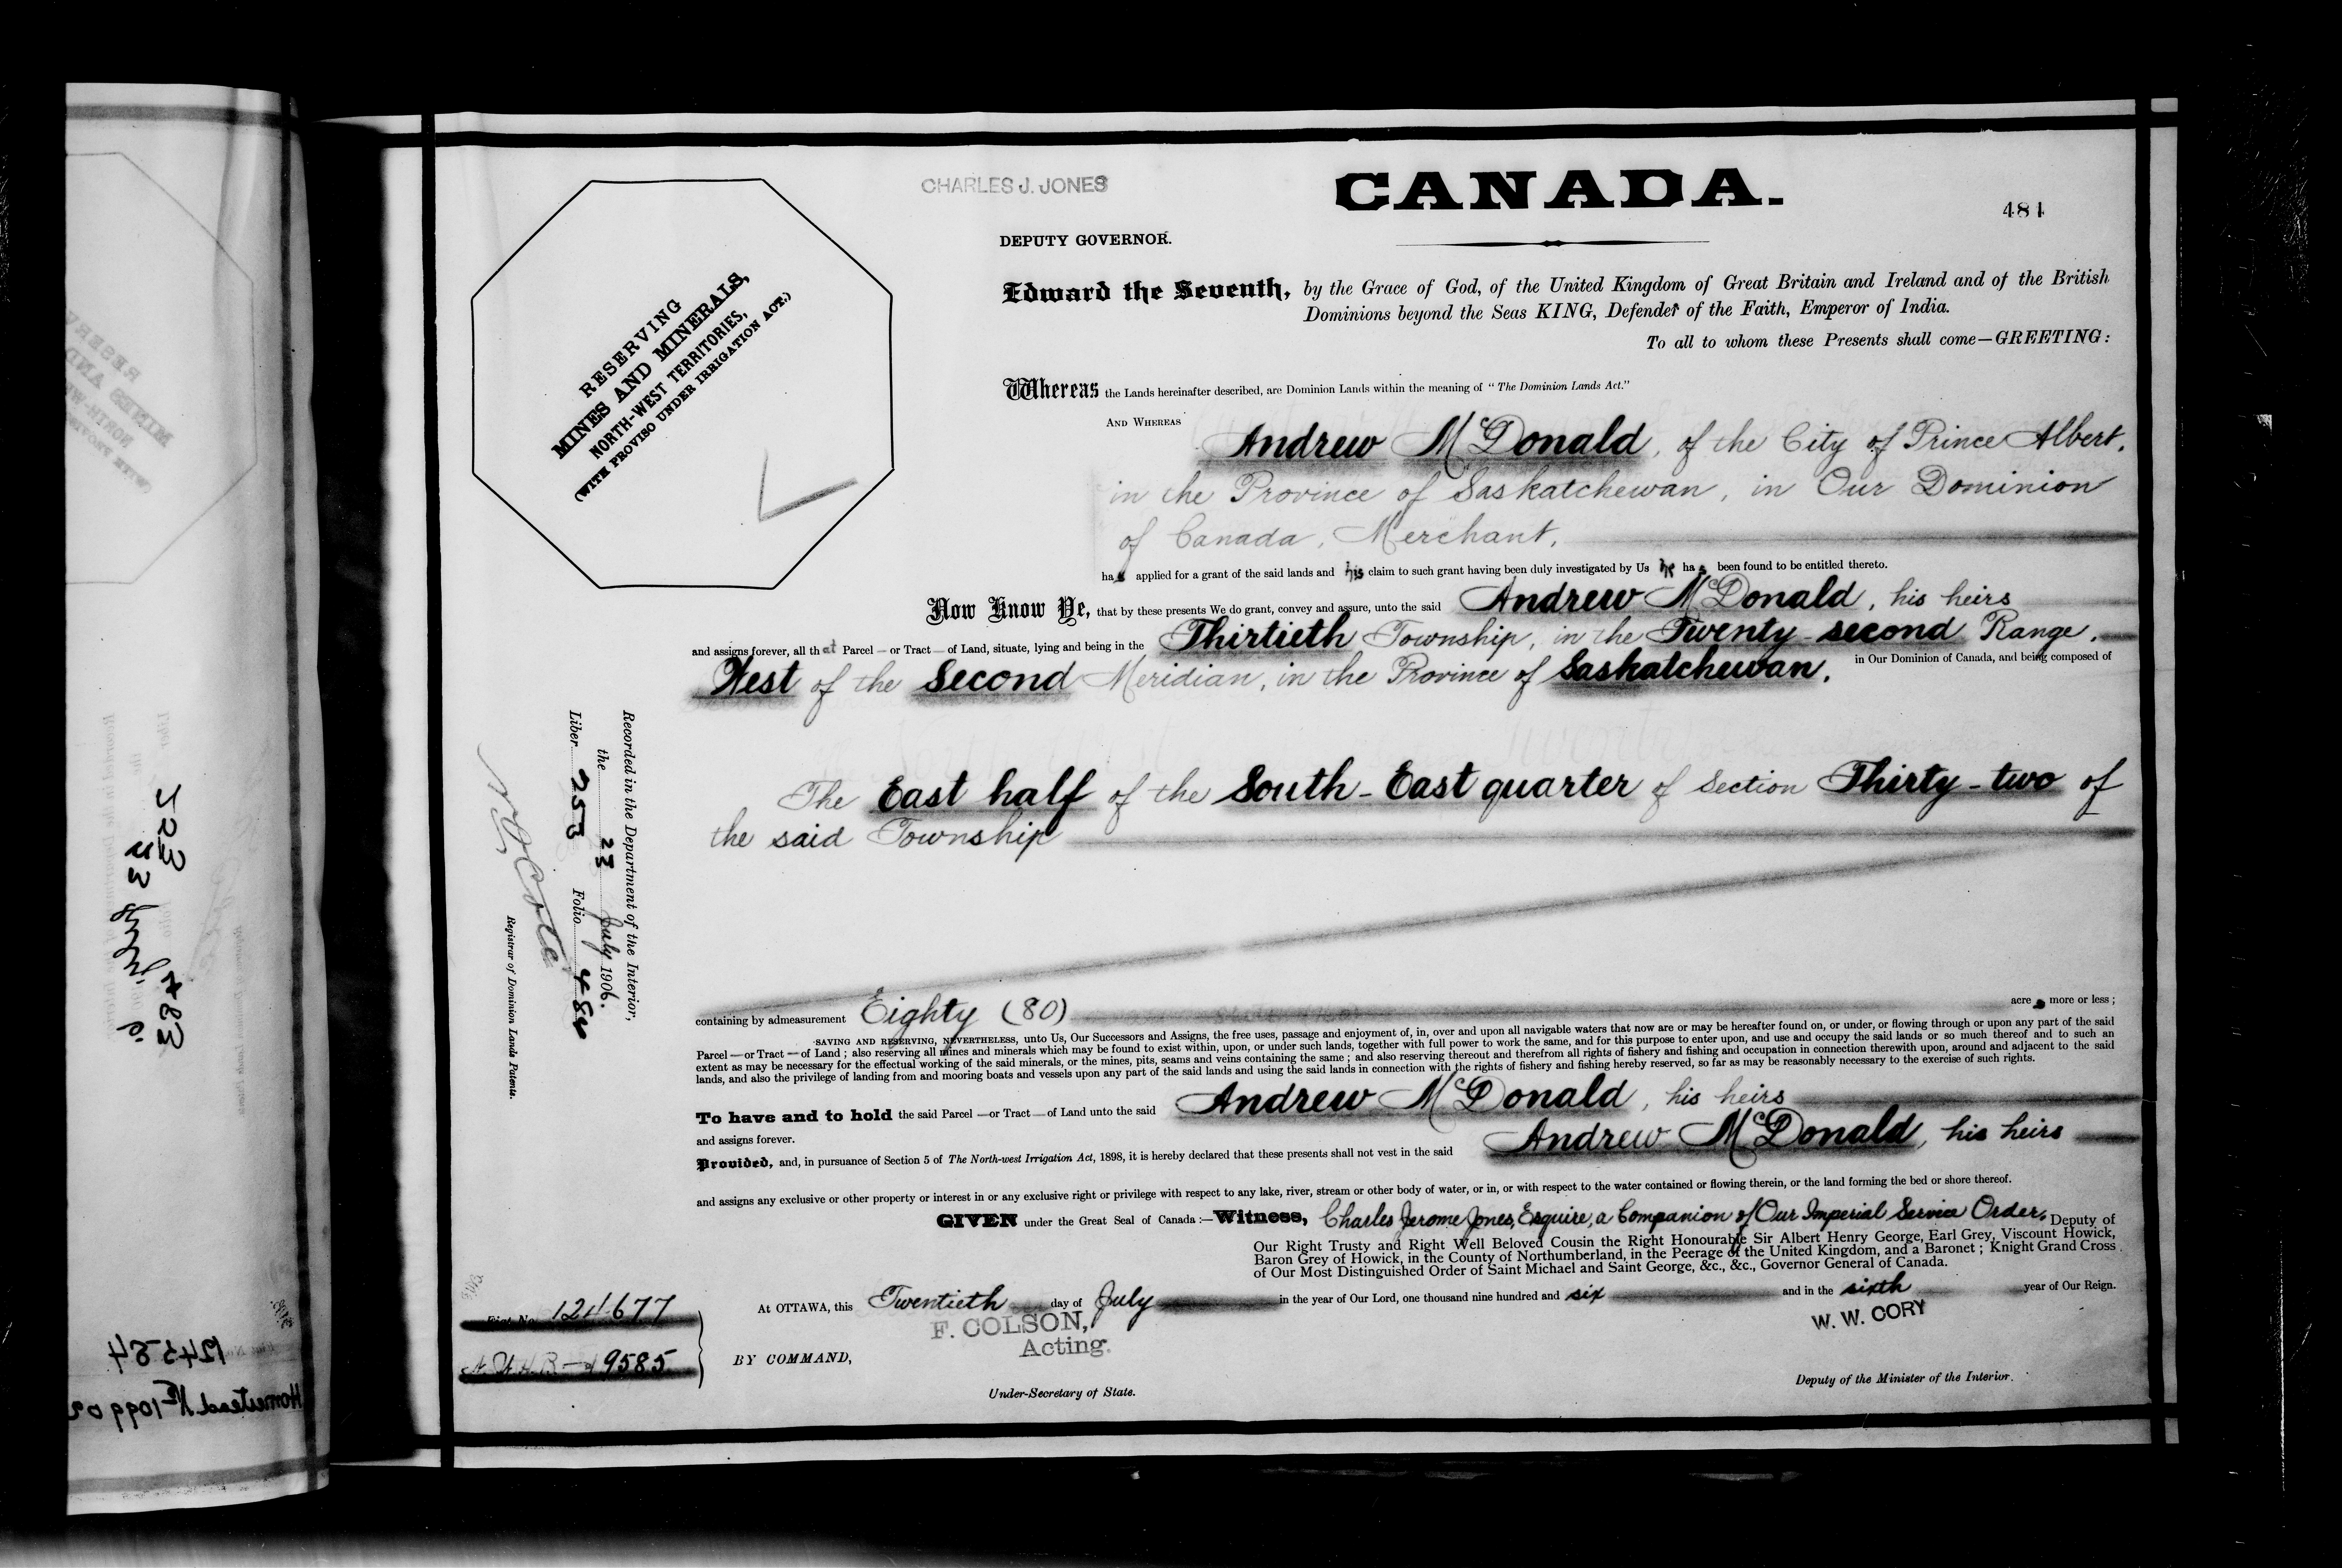 CHARLES J. JONES
CANADA.
481
DEPUTY GOVERNOR.
RESERVING
MINES AND MINERALS,
NORTH-WEST TERRITORIES,
(WITH PROVISO UNDER IRRIGATION ACT.)
Edward the Seventh, by the Grace of God, of the United Kingdom of Great Britain and Ireland and of the British
Dominions beyond the Seas KING, Defender of the Faith, Emperor of India.
To all to whom these Presents shall come—GREETING:
Whereas the Lands hereinafter described, are Dominion Lands within the meaning of "The Dominion Lands Act."
AND WHEREAS
Andrew McDonald, of the City of Prince Albert,
in the Province of Saskatchewan, in Our Dominion
of Canada, Merchant,
has applied for a grant of the said lands and his claim to such grant having been duly investigated by Us he has been found to be entitled thereto.
Now Know Ye, that by these presents We do grant, convey and assure, unto the said Andrew McDonald, his heirs
and assigns forever, all that Parcel — or Tract — of Land, situate, lying and being in the Thirtieth Township, in the Twenty-second Range,
West of the Second Meridian, in the Province of Saskatchewan, in Our Dominion of Canada, and being composed of
The East half of the South-East quarter of Section Thirty-two of
the said Township
containing by admeasurement Eighty (80) acres more or less;
SAVING AND RESERVING, NEVERTHELESS, unto Us, Our Successors and Assigns, the free uses, passage and enjoyment of, in, over and upon all navigable waters that now are or may be hereafter found on, or under, or flowing through or upon any part of the said
Parcel — or Tract — of Land; also reserving all mines and minerals which may be found to exist within, upon, or under such lands, together with full power to work the same, and for this purpose to enter upon, and use and occupy the said lands or so much thereof and to such an
extent as may be necessary for the effectual working of the said minerals, or the mines, pits, seams and veins containing the same; and also reserving thereout and therefrom all rights of fishery and fishing and occupation in connection therewith upon, around and adjacent to the said
lands, and also the privilege of landing from and mooring boats and vessels upon any part of the said lands and using the said lands in connection with the rights of fishery and fishing hereby reserved, so far as may be reasonably necessary to the exercise of such rights.
To have and to hold the said Parcel — or Tract — of Land unto the said Andrew McDonald, his heirs
and assigns forever.
Provided, and, in pursuance of Section 5 of The North-west Irrigation Act, 1898, it is hereby declared that these presents shall not vest in the said Andrew McDonald, his heirs
and assigns any exclusive or other property or interest in or any exclusive right or privilege with respect to any lake, river, stream or other body of water, or in, or with respect to the water contained or flowing therein, or the land forming the bed or shore thereof.
GIVEN under the Great Seal of Canada:—Witness, Charles Jerome Jones, Esquire, a Companion of Our Imperial Service Order, Deputy of
Our Right Trusty and Right Well Beloved Cousin the Right Honourable Sir Albert Henry George, Earl Grey, Viscount Howick,
Baron Grey of Howick, in the County of Northumberland, in the Peerage of the United Kingdom, and a Baronet; Knight Grand Cross
of Our Most Distinguished Order of Saint Michael and Saint George, &c., &c., Governor General of Canada.
At OTTAWA, this Twentieth day of July in the year of Our Lord, one thousand nine hundred and six and in the sixth year of Our Reign.
F. COLSON,
Acting.
W. W. CORY
BY COMMAND,
Under-Secretary of State.
Deputy of the Minister of the Interior.
Recorded in the Department of the Interior,
the 23 July 1906.
Liber 253 Folio 481
N O Coté
Registrar of Dominion Lands Patents.
9585
124584
Homestead No 109902